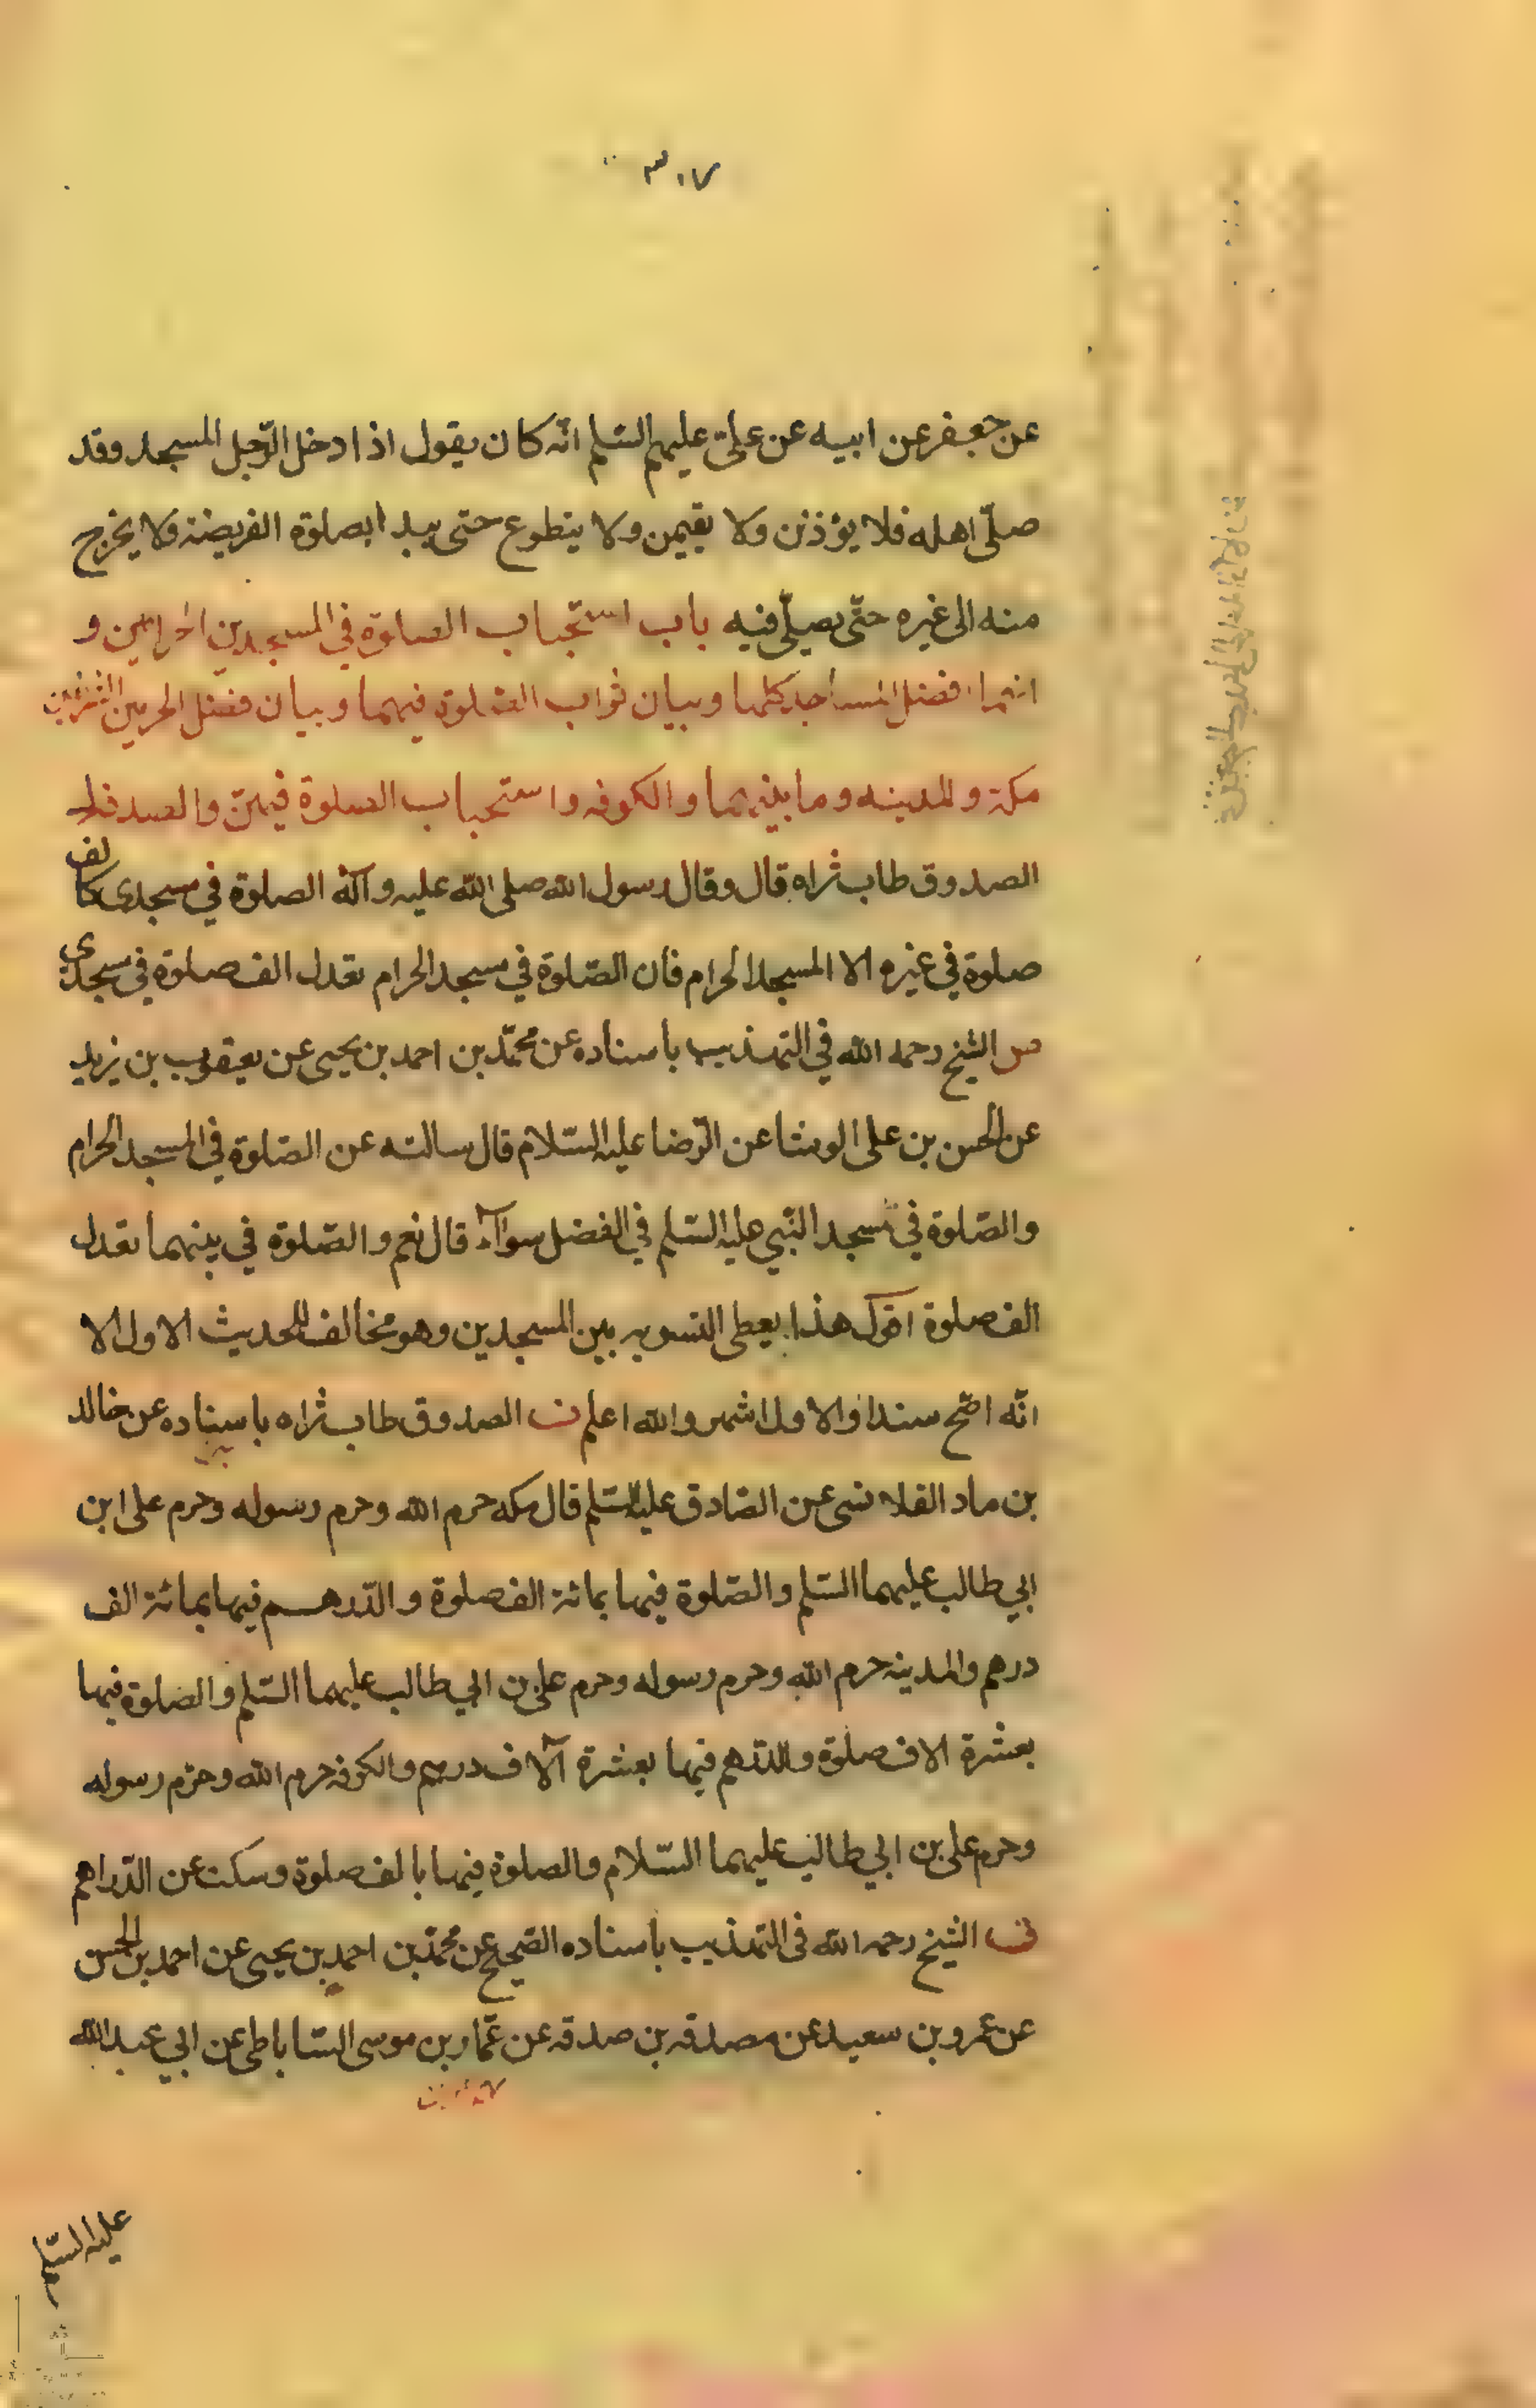 ٣٠٧
عن جعفر عن ابيه عن علیّ عليهم السّلم انّه كان يقول اذا دخل الرّجل المسجد وقد
صلّى اهله فلا يؤذنن ولا يقيمن ولا يتطوع حتى يبدا بصلوة الفريضة ولا يخرج
منه الى غيره حتّى يصلّي فيه باب استحباب الصلوة في المسجدين الحرامين و
انهما افضل المساجد كلها وبيان ثواب الصّلوة فيهما وبيان فضل الحرمين الشريفين
مكة والمدينه وما بينهما والكوفه واستحباب الصلوة فيهنّ والصدقه
الصدوق طاب ثراه قال وقال رسول الله صلى الله عليه وآله الصلوة في مسجدي كالف
صلوة في غيره الا المسجد الحرام فان الصّلوة في مسجد الحرام تعدل الف صلوة في مسجدي
ص الشيخ رحمه الله في التهذيب باسناده عن محمّد بن احمد بن يحيى عن يعقوب بن يزيد
عن الحسن بن على الوشا عن الرّضا عليه السّلام قال سالته عن الصّلوة في المسجد الحرام
والصّلوة في مسجد النّبي عليه السّلم في الفضل سوآء قال نعم والصّلوة في بينهما تعدل
الف صلوة اقول هذا يعطى التسويه بين المسجدين وهو مخالف للحديث الاول الا
انّه اصّح سندا والاول اشهر والله اعلم ف الصدوق طاب ثراه باسناده عن خالد
بن ماد القلانسى عن الصّادق عليه السّلم قال مكه حرم الله وحرم رسوله وحرم على ابن
ابي طالب عليهما السّلم والصّلوة فيها بمائة الف صلوة والدّرهم فيها بمائة الف
درهم والمدينه حرم الله وحرم رسوله وحرم على بن ابي طالب عليهما السّلم والصّلوة فيها
بعشرة الاف صلوة والدّرهم فيها بعشرة آلاف درهم والكوفه حرم الله وحرم رسوله
وحرم على بن ابي طالب عليهما السّلام والصلوة فيها بالف صلوة وسكت عن الدّراهم
ف الشيخ رحمه الله فى التهذيب باسناده الصّحيح عن محمّد بن احمد بن يحيى عن احمد بن الحسن
عن عمرو بن سعيد عن مصدقه بن صدقه عن عمّار بن موسى السّاباطى عن ابي عبد الله
عليه السّلم